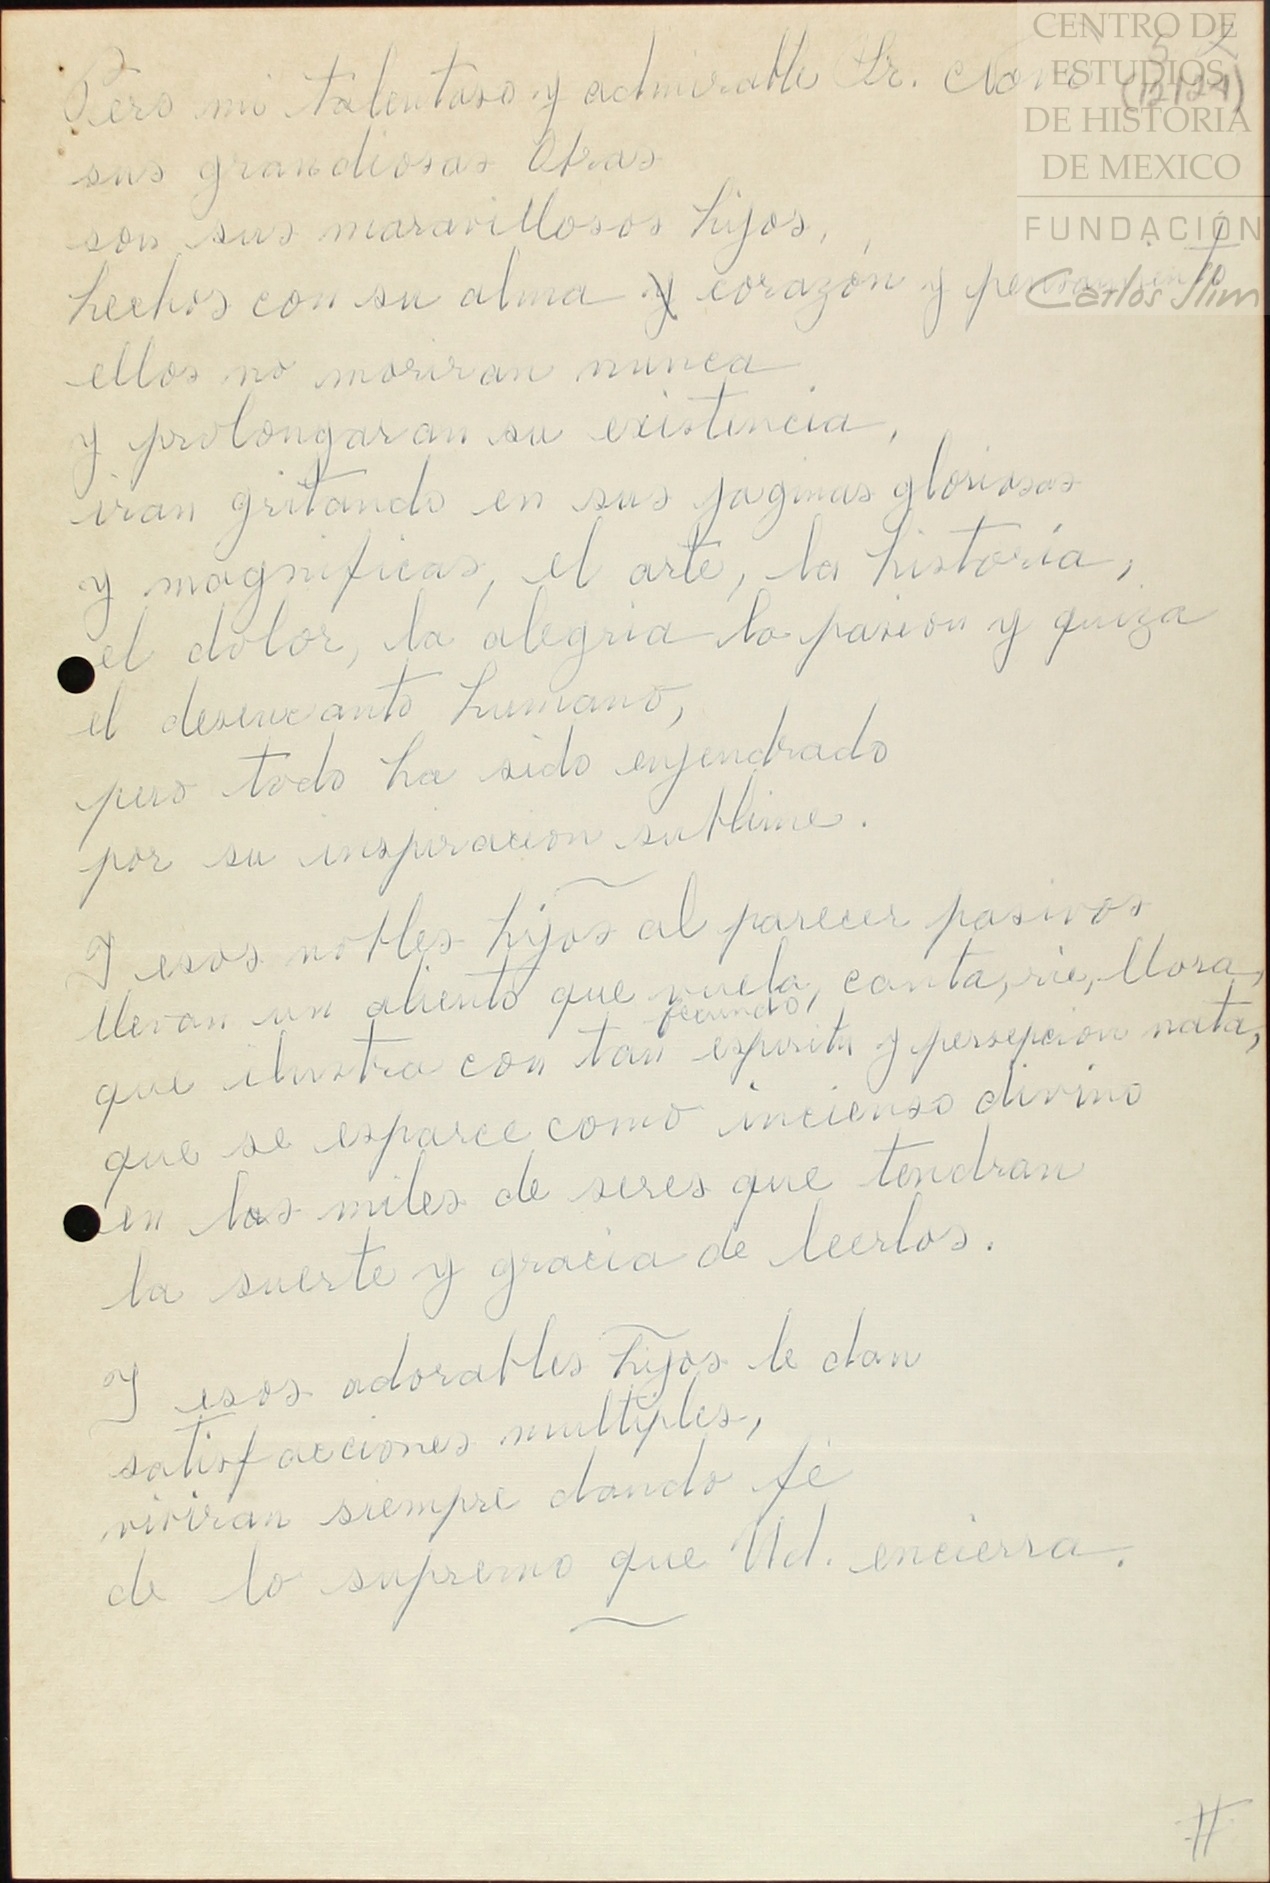 Pero mi talentoso y admirable Sr. Novo
sus grandiosas Obras
son sus maravillosos hijos,
hechos con su alma y corazón y pensamiento
ellos no moriran nunca
y prolongaran su existencia,
iran gritando en sus paginas gloriosas
y magnificas, el arte, la historia,
el dolor, la alegria la pasion y quiza
el desencanto humano,
pero todo ha sido enjendrado
por su inspiracion sublime.
I esos nobles hijos al parecer pasivos
llevan un aliento que vuela, canta, rie, llora,
fecundo,
que ilustra con tan espiritu y persepcion nata,
que se esparce como incienso divino
en los miles de seres que tendran
la suerte y gracia de leerlos.
I esos adorables hijos le dan
satisfacciones multiples,
viviran siempre dando fé
de lo supremo que Ud. encierra.
CENTRO DE
ESTUDIOS
DE HISTORIA
DE MEXICO
FUNDACIÓN
Carlos Slim